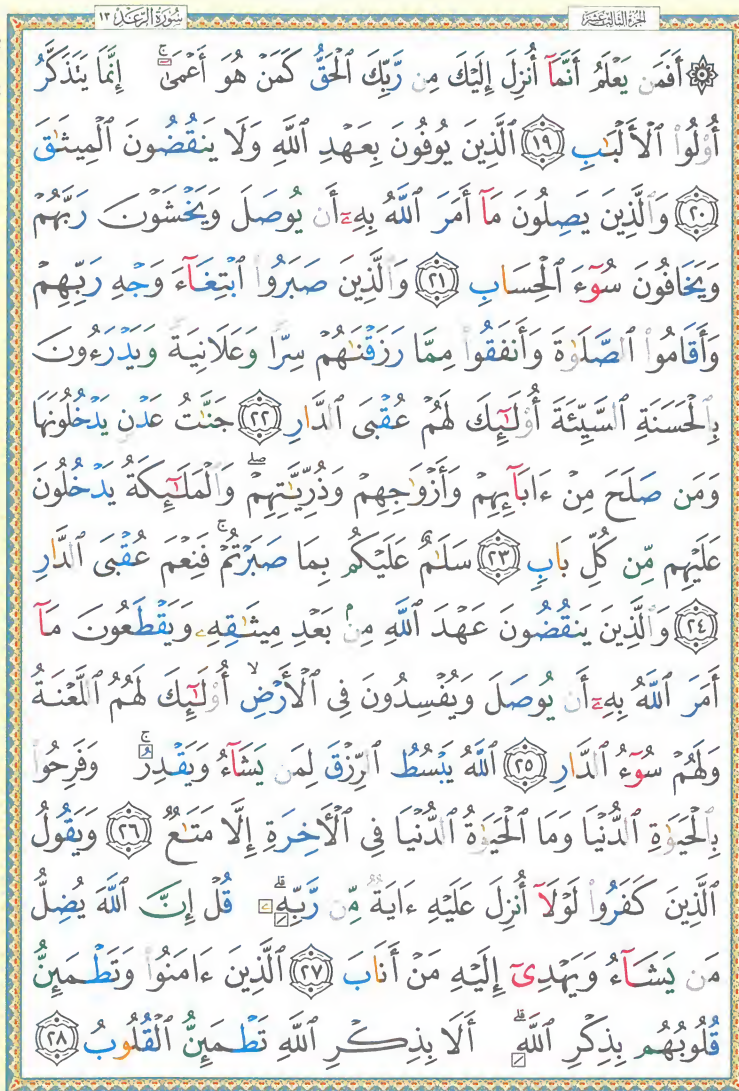 سُورَةُ الرَّعْدِ ١٣
الجُزْءُ الثَّالِثَ عَشَرَ
۞ أَفَمَن يَعْلَمُ أَنَّمَآ أُنزِلَ إِلَيْكَ مِن رَّبِّكَ ٱلْحَقُّ كَمَنْ هُوَ أَعْمَىٰٓ ۚ إِنَّمَا يَتَذَكَّرُ
أُو۟لُوا۟ ٱلْأَلْبَـٰبِ ١٩ ٱلَّذِينَ يُوفُونَ بِعَهْدِ ٱللَّهِ وَلَا يَنقُضُونَ ٱلْمِيثَـٰقَ
٢٠ وَٱلَّذِينَ يَصِلُونَ مَآ أَمَرَ ٱللَّهُ بِهِۦٓ أَن يُوصَلَ وَيَخْشَوْنَ رَبَّهُمْ
وَيَخَافُونَ سُوٓءَ ٱلْحِسَابِ ٢١ وَٱلَّذِينَ صَبَرُوا۟ ٱبْتِغَآءَ وَجْهِ رَبِّهِمْ
وَأَقَامُوا۟ ٱلصَّلَوٰةَ وَأَنفَقُوا۟ مِمَّا رَزَقْنَـٰهُمْ سِرًّا وَعَلَانِيَةً وَيَدْرَءُونَ
بِٱلْحَسَنَةِ ٱلسَّيِّئَةَ أُو۟لَـٰٓئِكَ لَهُمْ عُقْبَى ٱلدَّارِ ٢٢ جَنَّـٰتُ عَدْنٍ يَدْخُلُونَهَا
وَمَن صَلَحَ مِنْ ءَابَآئِهِمْ وَأَزْوَٰجِهِمْ وَذُرِّيَّـٰتِهِمْ ۖ وَٱلْمَلَـٰٓئِكَةُ يَدْخُلُونَ
عَلَيْهِم مِّن كُلِّ بَابٍ ٢٣ سَلَـٰمٌ عَلَيْكُم بِمَا صَبَرْتُمْ ۚ فَنِعْمَ عُقْبَى ٱلدَّارِ
٢٤ وَٱلَّذِينَ يَنقُضُونَ عَهْدَ ٱللَّهِ مِنۢ بَعْدِ مِيثَـٰقِهِۦ وَيَقْطَعُونَ مَآ
أَمَرَ ٱللَّهُ بِهِۦٓ أَن يُوصَلَ وَيُفْسِدُونَ فِى ٱلْأَرْضِ ۙ أُو۟لَـٰٓئِكَ لَهُمُ ٱللَّعْنَةُ
وَلَهُمْ سُوٓءُ ٱلدَّارِ ٢٥ ٱللَّهُ يَبْسُطُ ٱلرِّزْقَ لِمَن يَشَآءُ وَيَقْدِرُ ۚ وَفَرِحُوا۟
بِٱلْحَيَوٰةِ ٱلدُّنْيَا وَمَا ٱلْحَيَوٰةُ ٱلدُّنْيَا فِى ٱلْأَخِرَةِ إِلَّا مَتَـٰعٌ ٢٦ وَيَقُولُ
ٱلَّذِينَ كَفَرُوا۟ لَوْلَآ أُنزِلَ عَلَيْهِ ءَايَةٌ مِّن رَّبِّهِۦ ۗ قُلْ إِنَّ ٱللَّهَ يُضِلُّ
مَن يَشَآءُ وَيَهْدِىٓ إِلَيْهِ مَنْ أَنَابَ ٢٧ ٱلَّذِينَ ءَامَنُوا۟ وَتَطْمَئِنُّ
قُلُوبُهُم بِذِكْرِ ٱللَّهِ ۗ أَلَا بِذِكْرِ ٱللَّهِ تَطْمَئِنُّ ٱلْقُلُوبُ ٢٨